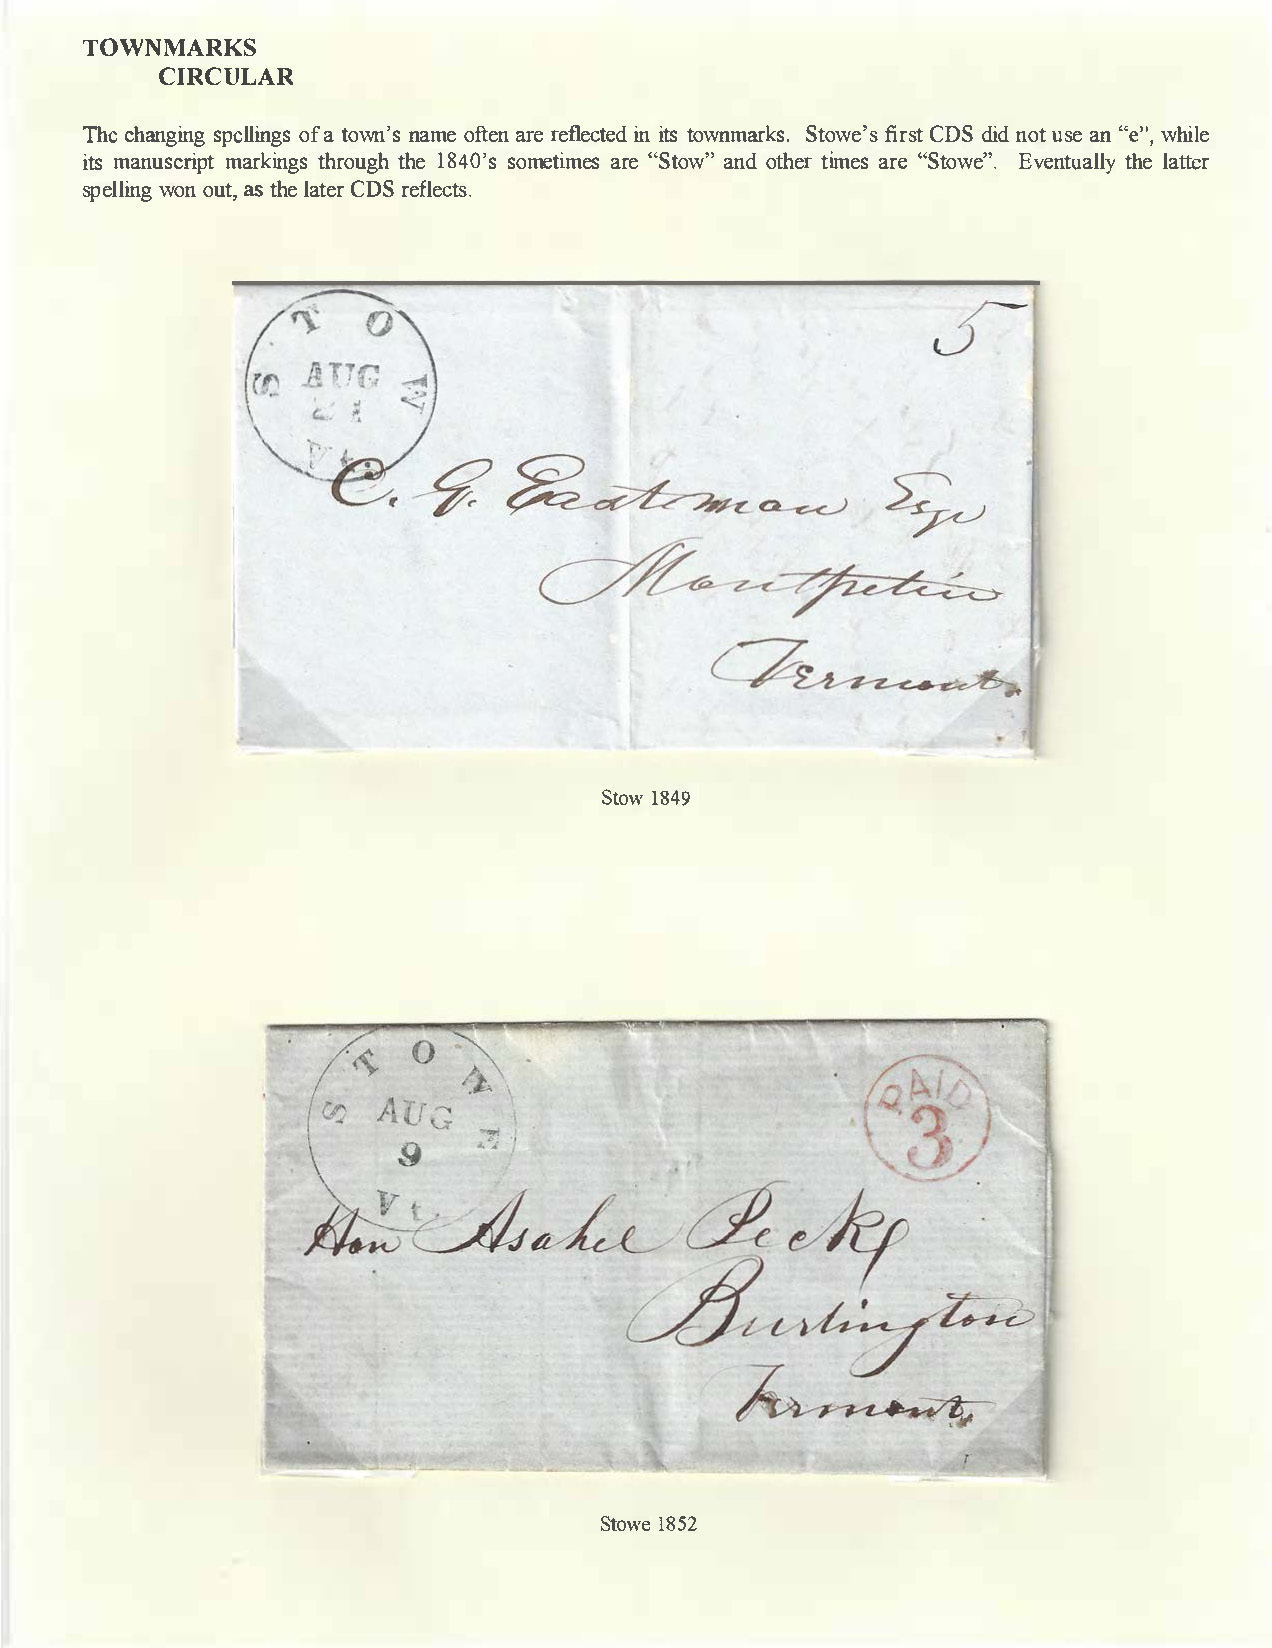 TOWNMARKS
CIRCULAR
The changing spellings of a town's name often are reflected in its townmarks. Stowe's first CDS did not use an "e", while
its manuscript markings through the 1840's sometimes are "Stow" and other times are "Stowe". Eventually the latter
spelling won out, as the later CDS reflects.
STOW
AUG
21
Vt.
5
C. G. Eastman Esq
Montpelier
Vermont.
Stow 1849
STOWE
AUG
9
Vt.
PAID
3
Hon Asahel Peck
Burlington
Vermont.
Stowe 1852